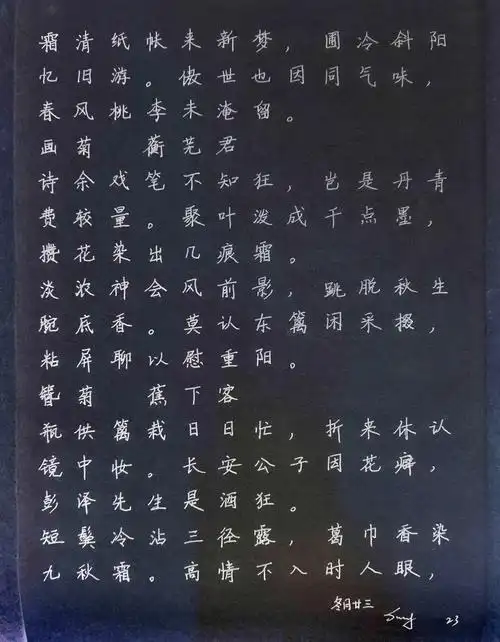 霜清纸帐来新梦，圃冷斜阳
忆旧游。傲世也因同气味，
春风桃李未淹留。
画菊 蘅芜君
诗余戏笔不知狂，岂是丹青
费较量。聚叶泼成千点墨，
攒花染出几痕霜。
淡浓神会风前影，跳脱秋生
腕底香。莫认东篱闲采掇，
粘屏聊以慰重阳。
簪菊 蕉下客
瓶供篱栽日日忙，折来休认
镜中妆。长安公子因花癖，
彭泽先生是酒狂。
短鬓冷沾三径露，葛巾香染
九秋霜。高情不入时人眼，
冬月廿三
23